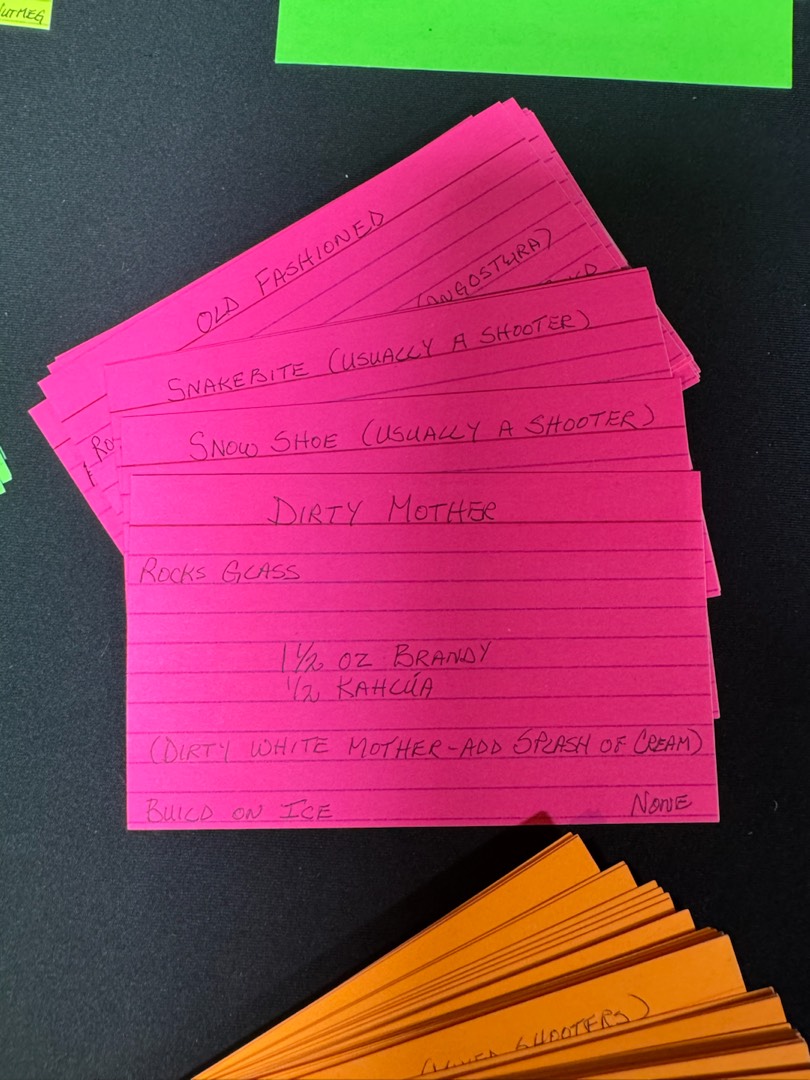 NUTMEG
OLD FASHIONED
(ANGOSTURA)
SNAKEBITE (USUALLY A SHOOTER)
SNOW SHOE (USUALLY A SHOOTER)
DIRTY MOTHER
ROCKS GLASS
1 1/2 OZ BRANDY
1/2 KAHLÚA
(DIRTY WHITE MOTHER-ADD SPLASH OF CREAM)
BUILD ON ICE NONE
SHOOTERS)